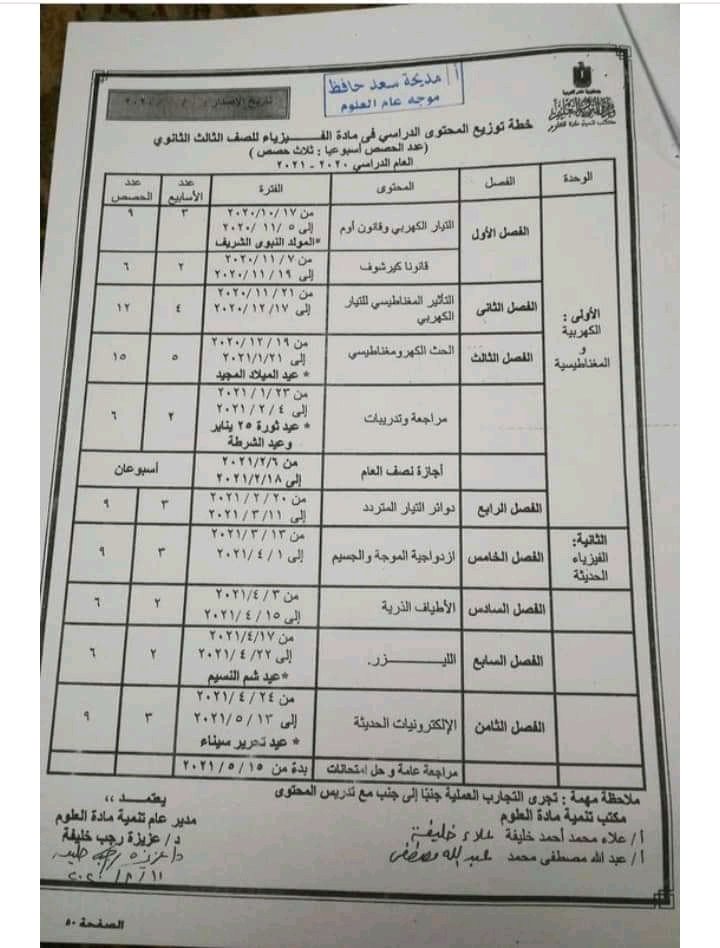 أ / مديحة سعد حافظ
موجه عام العلوم
تاريخ الإصدار
جمهورية مصر العربية
مكتب تنمية مادة العلوم
خطة توزيع المحتوى الدراسي فى مادة الفـــــيزياء للصف الثالث الثانوي
(عدد الحصص أسبوعيا : ثلاث حصص )
العام الدراسي ٢٠٢٠ - ٢٠٢١
الوحدة الفصل المحتوى الفترة عدد الأسابيع عدد الحصص
الأولى :
الكهربية
و
المغناطيسية
الفصل الأول
التيار الكهربي وقانون أوم
من ١٧ /١٠/ ٢٠٢٠
إلى ٥ /١١ /٢٠٢٠
*المولد النبوى الشريف
٣ ٩
قانونا كيرشوف
من ٧ /١١ /٢٠٢٠
إلى ١٩ /١١ /٢٠٢٠
٢ ٦
الفصل الثانى
التأثير المغناطيسي للتيار
الكهربي
من ٢١ /١١ /٢٠٢٠
إلى ١٧ /١٢ /٢٠٢٠
٤ ١٢
الفصل الثالث
الحث الكهرومغناطيسي
من ١٩ /١٢ /٢٠٢٠
إلى ٢٠٢١/١/٢١
* عيد الميلاد المجيد
٥ ١٥
مراجعة وتدريبات
من ٢٣ /١ /٢٠٢١
إلى ٤ /٢ /٢٠٢١
* عيد ثورة ٢٥ يناير
وعيد الشرطة
٢ ٦
أجازة نصف العام
من ٢٠٢١/٢/٦
إلى ٢٠٢١/٢/١٨
أسبوعان
الفصل الرابع
دوائر التيار المتردد
من ٢٠ /٢ /٢٠٢١
إلى ١١ /٣ /٢٠٢١
٣ ٩
الثانية:
الفيزياء
الحديثة
الفصل الخامس
ازدواجية الموجة والجسيم
من ١٣ /٣ /٢٠٢١
إلى ١ /٤ /٢٠٢١
٣ ٩
الفصل السادس
الأطياف الذرية
من ٣ /٢٠٢١/٤
إلى ١٥ /٤ /٢٠٢١
٢ ٦
الفصل السابع
الليـــــــــزر.
من ٢٠٢١/٤/١٧
إلى ٢٢ /٤ /٢٠٢١
*عيد شم النسيم
٢ ٦
الفصل الثامن
الإلكترونيات الحديثة
من ٢٤ /٤ /٢٠٢١
إلى ١٣ /٥ /٢٠٢١
* عيد تحرير سيناء
٣ ٩
مراجعة عامة و حل امتحانات
بدة من ١٥ /٥ /٢٠٢١
ملاحظة مهمة : تجرى التجارب العملية جنبًا إلى جنب مع تدريس المحتوى
مكتب تنمية مادة العلوم
أ/ علاء محمد أحمد خليفة علاء خليفة
أ/ عبد الله مصطفى محمد عبد الله مصطفى
يعتمد ،،
مدير عام تنمية مادة العلوم
د/ عزيزة رجب خليفة
د/ عزيزة رجب خليفة
الصفحة ٥٠